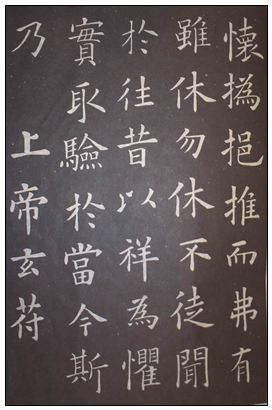 懷撝挹推而弗有
雖休勿休不徒聞
於往昔以祥為懼
實取驗於當今斯
乃 上帝玄苻